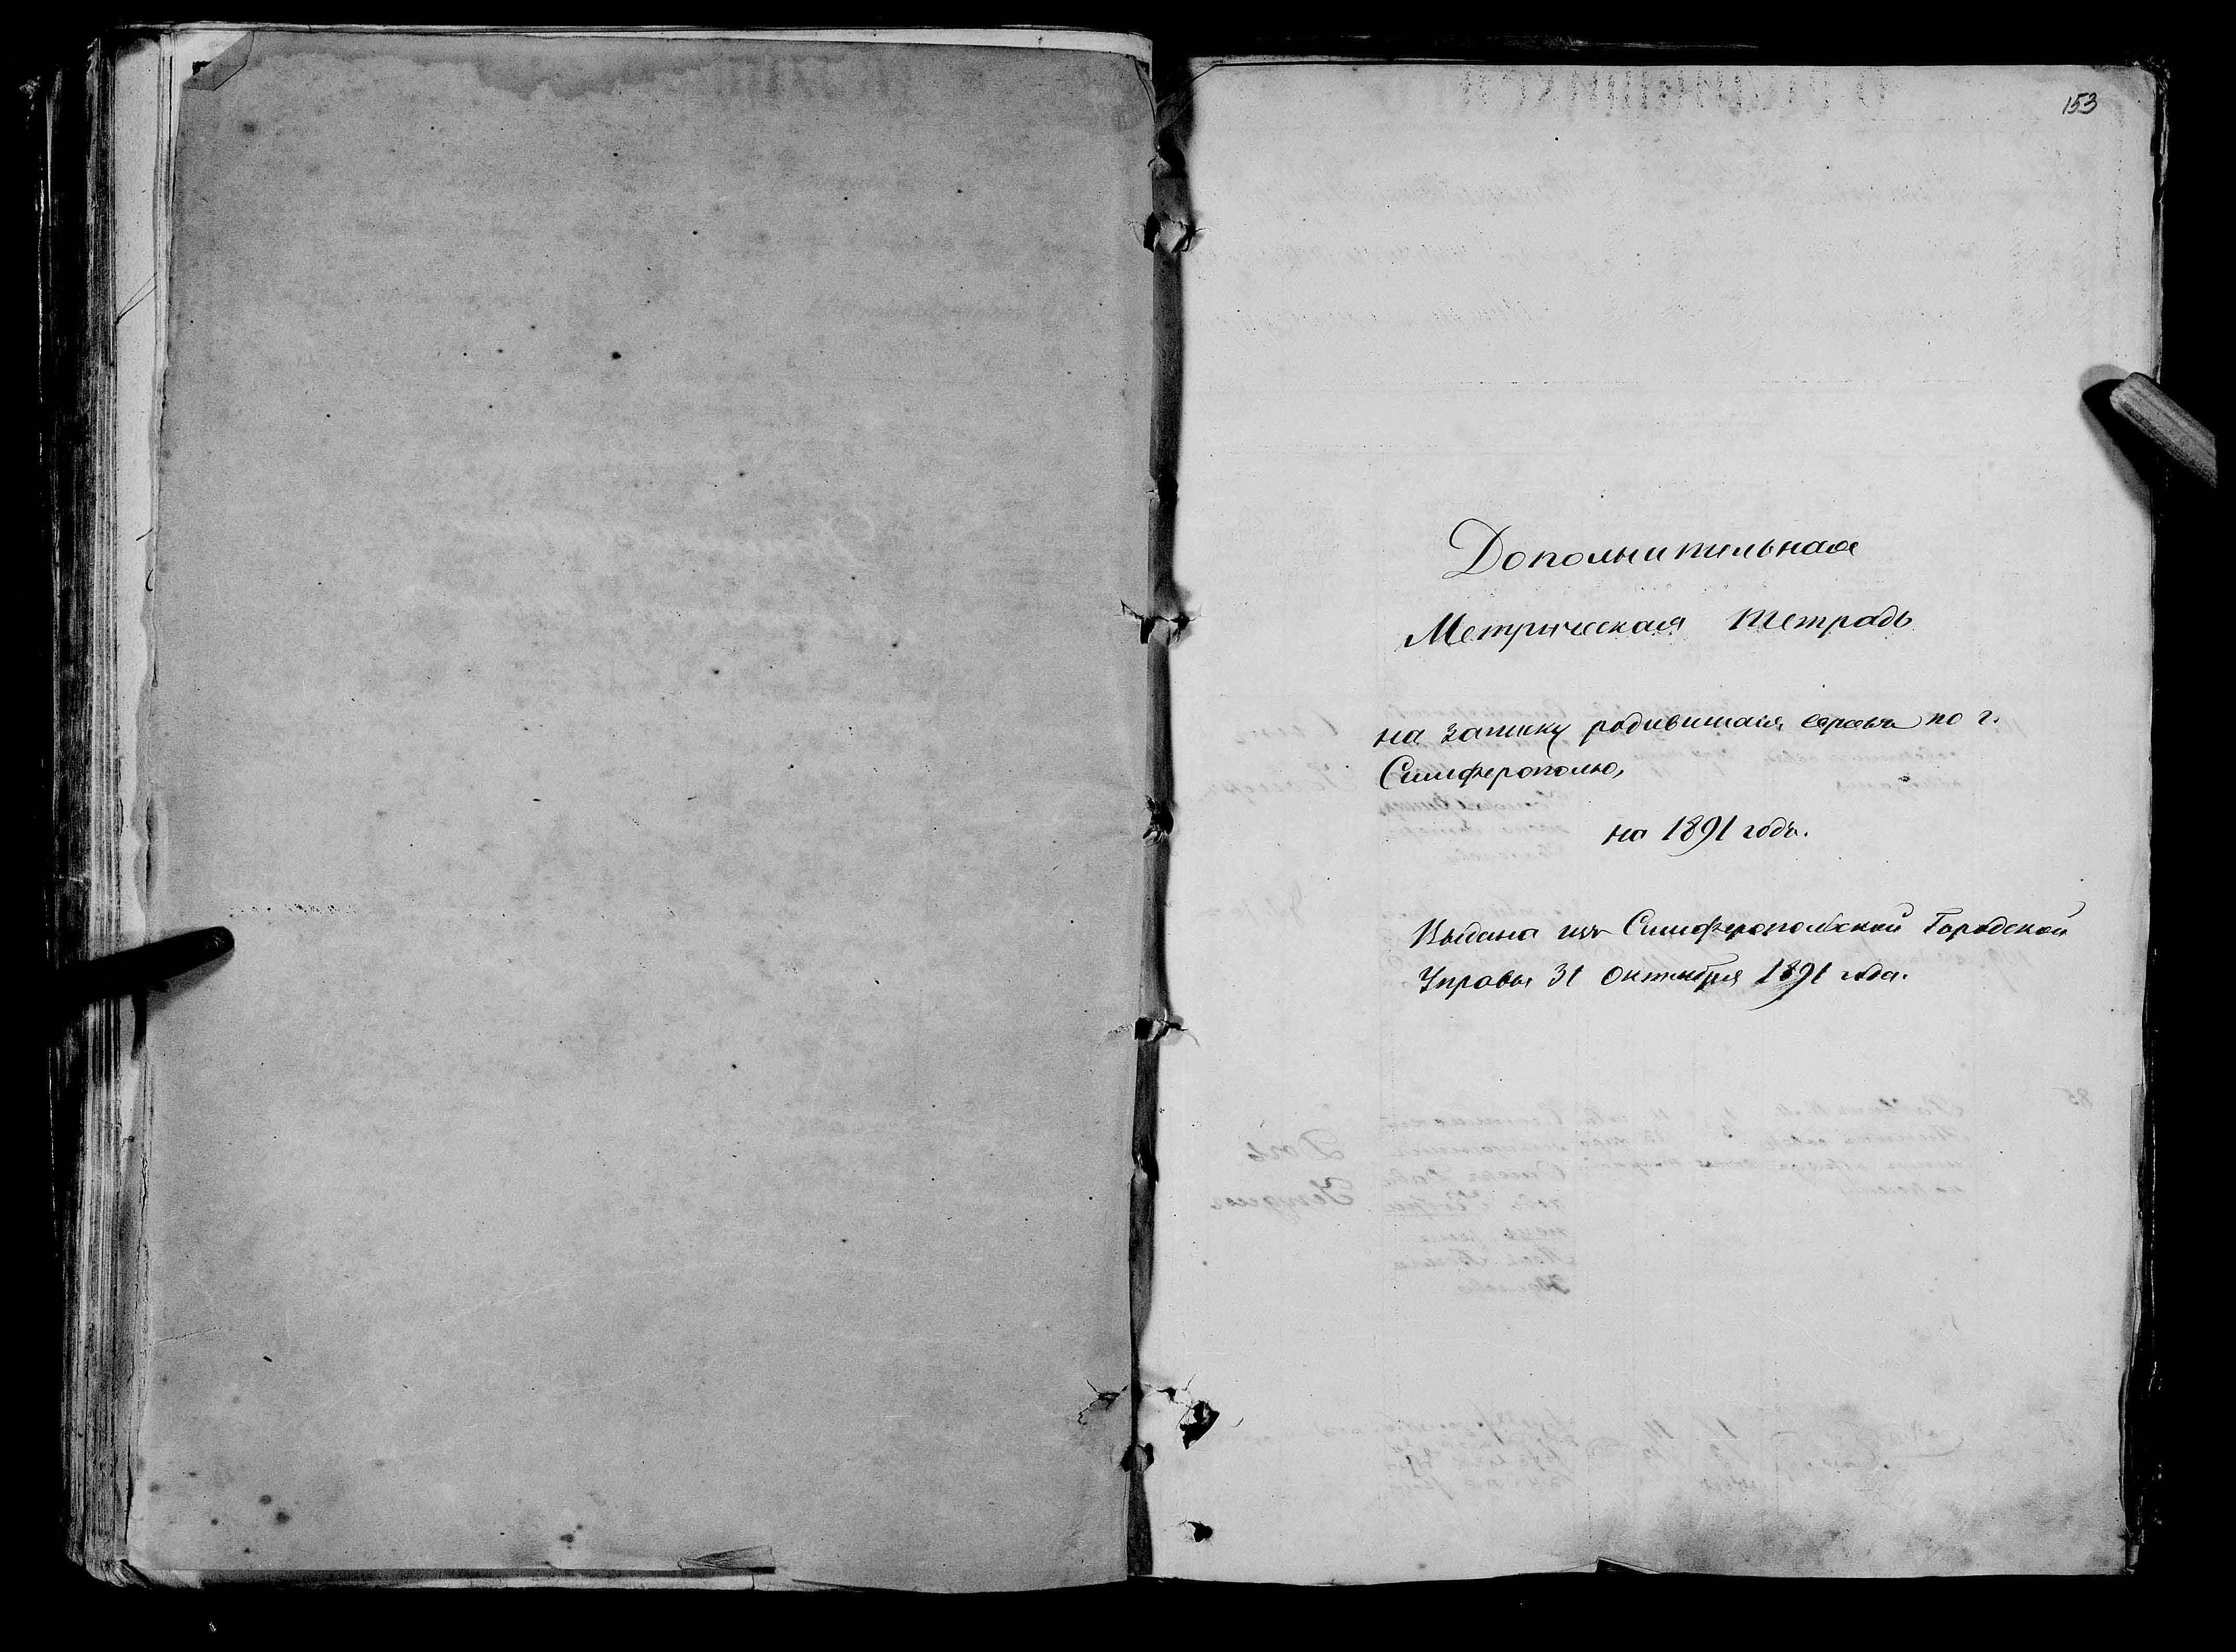 153
Дополнительная
Метрическая тетрадь
на записку родившихся евреевъ по г.
Симферополю,
на 1891 годъ.
Выдана изъ Симферопольской Городской
Управы 31 Октября 1891 года.